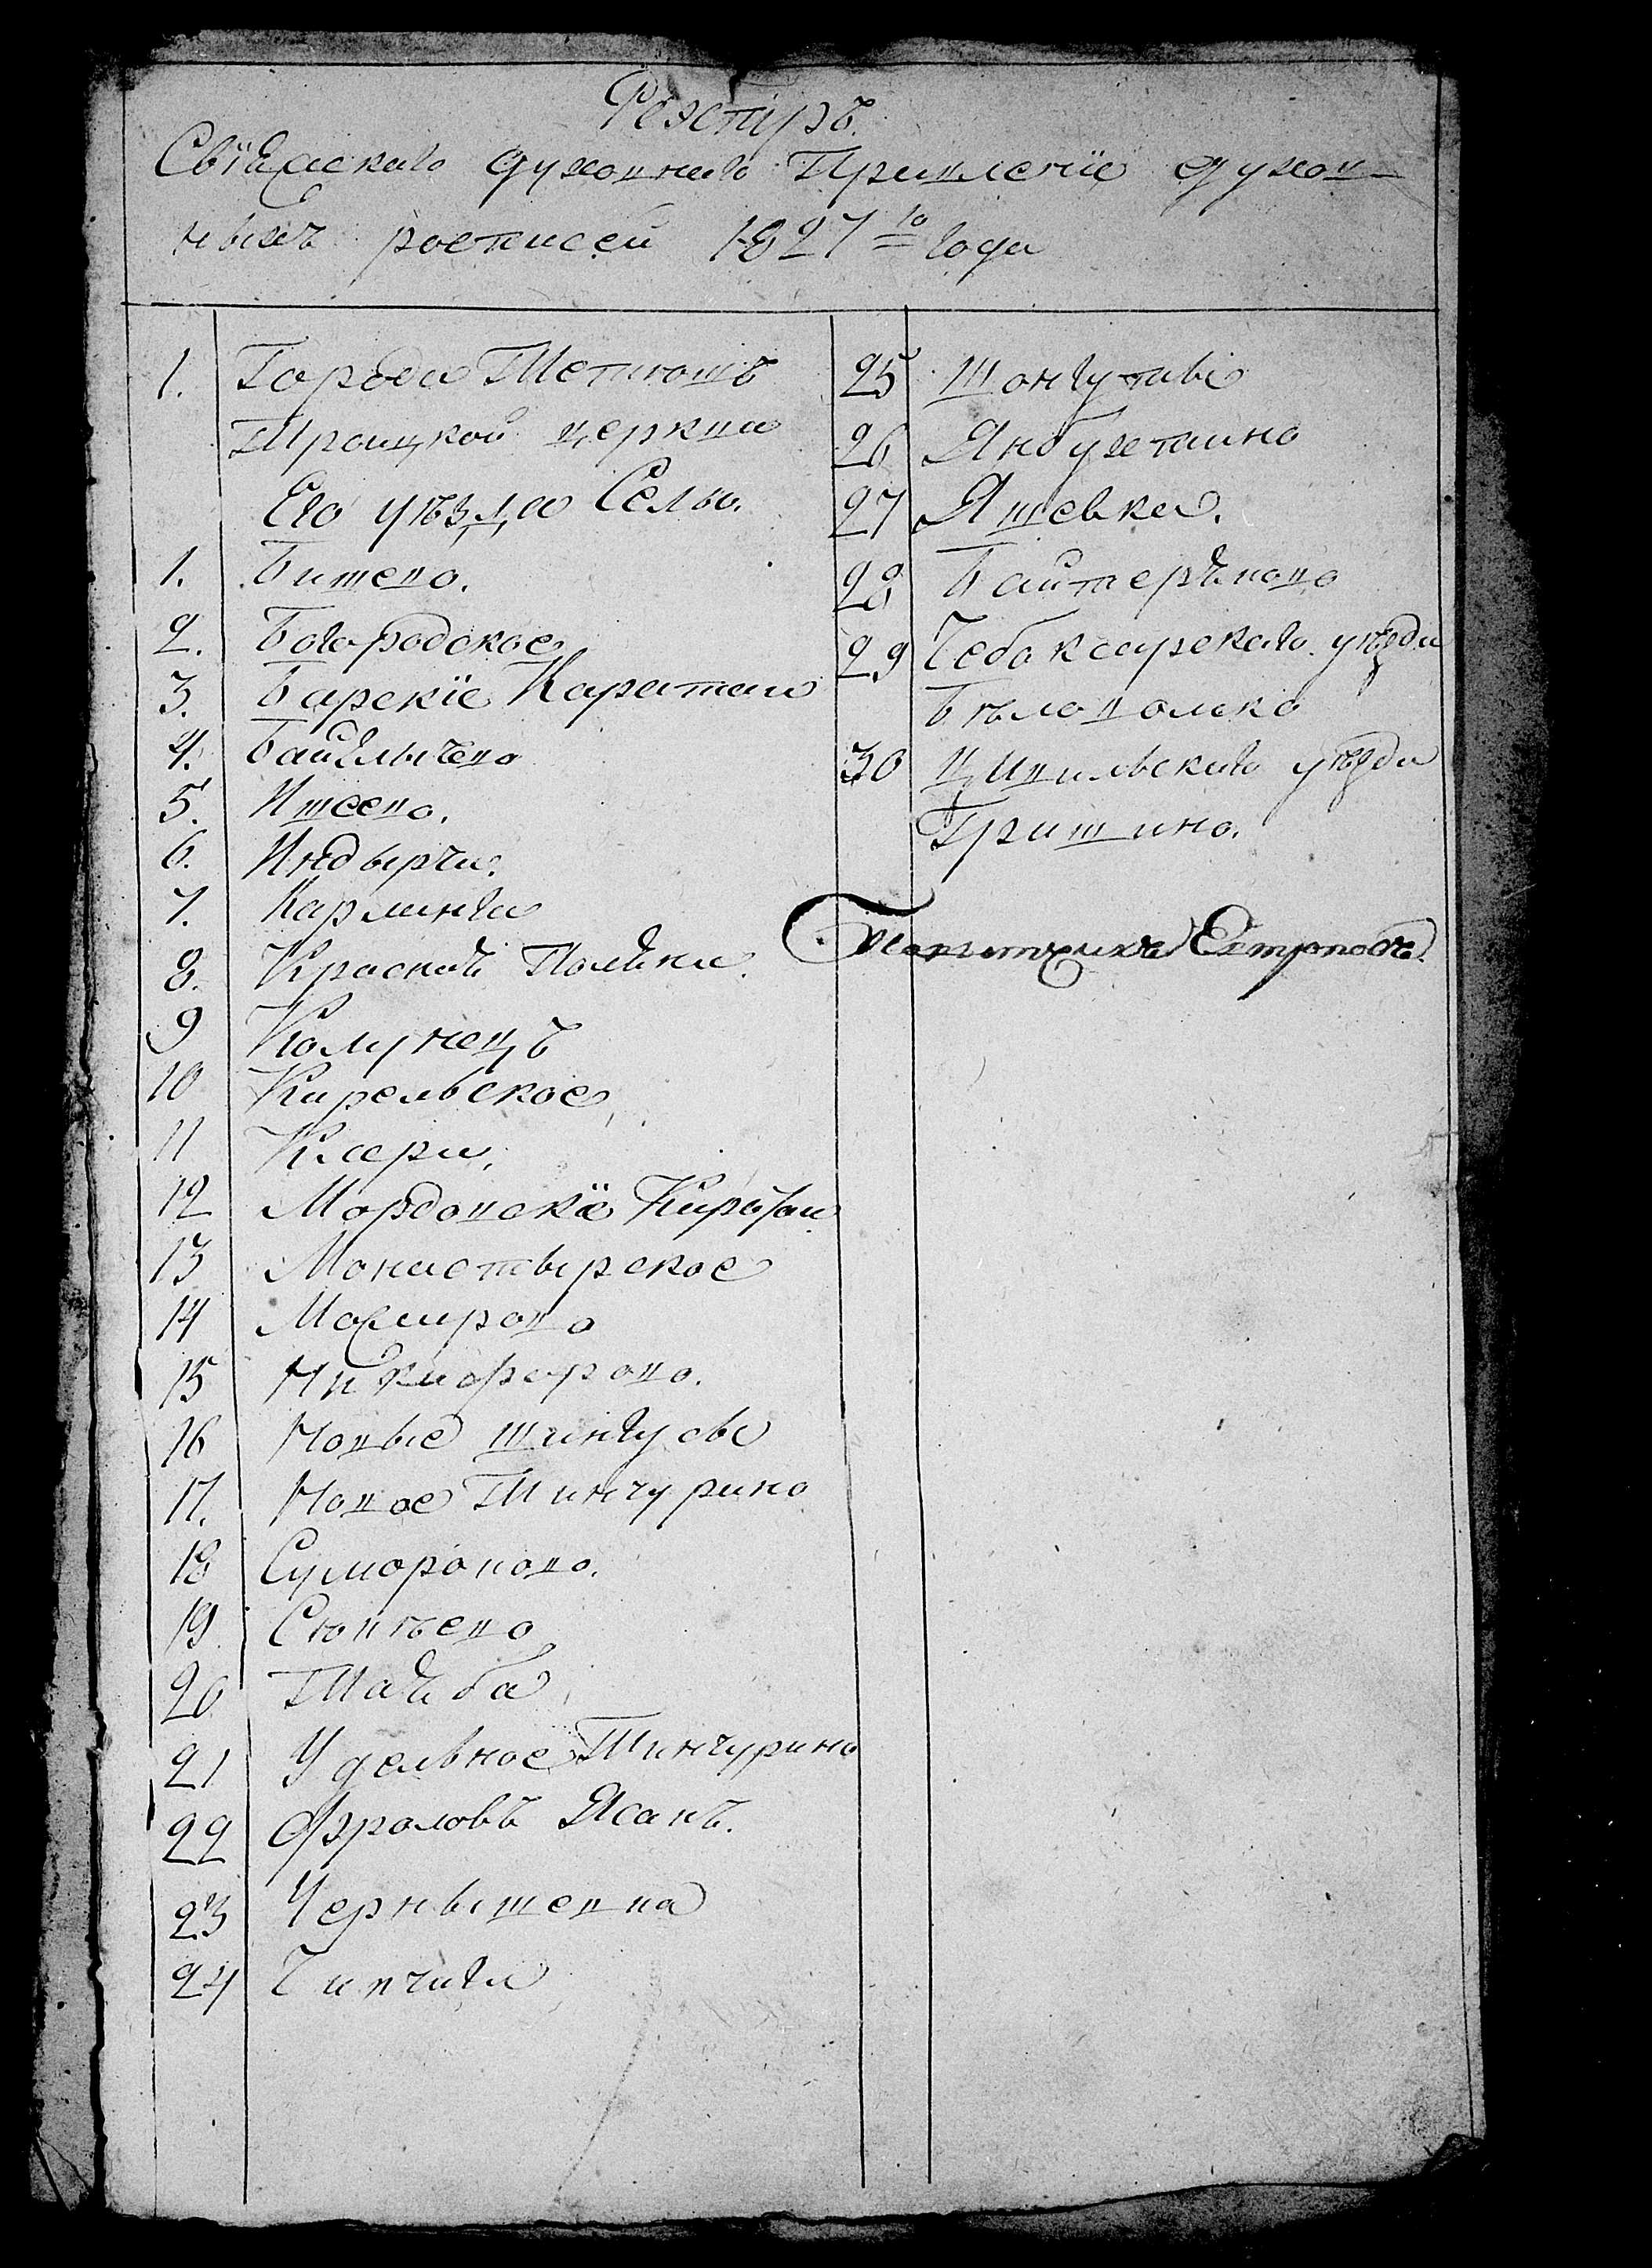 Реэстръ
Свіяжскаго духовнаго Правленіе духов-
ныхъ росписей 1827го года
1. Города Тетюшъ
Троицкой церкви
Его уѣзда Селы.
1. Бишево.
2. Богородское
3. Барскіе Каратаи
4. Байглычево
5. Ишеево.
6. Индырчи.
7. Кармынги
8. Красной Полянки.
9 Колунецъ
10 Кирельское
11 Кіяери.
12 Мордовскіе Каратаи
13 Монастырское
14 Можарово
15 Никифорово.
16 Новые шингусы
17. Новое Тинчурино
18 Сумороково.
19 Сюнчево
20 Таяба
21 Удельное Тинчурино
22 Фроловъ Ясакъ.
23 Чернышевка
24 Чинчаги
25 шонгуты
26 Янбухтино
27 Яшевка.
28 Байтеряково
29 Чебоксарскаго уѣзда
Бѣловолжко
30 Цивильскаго уѣзда
Гришино.